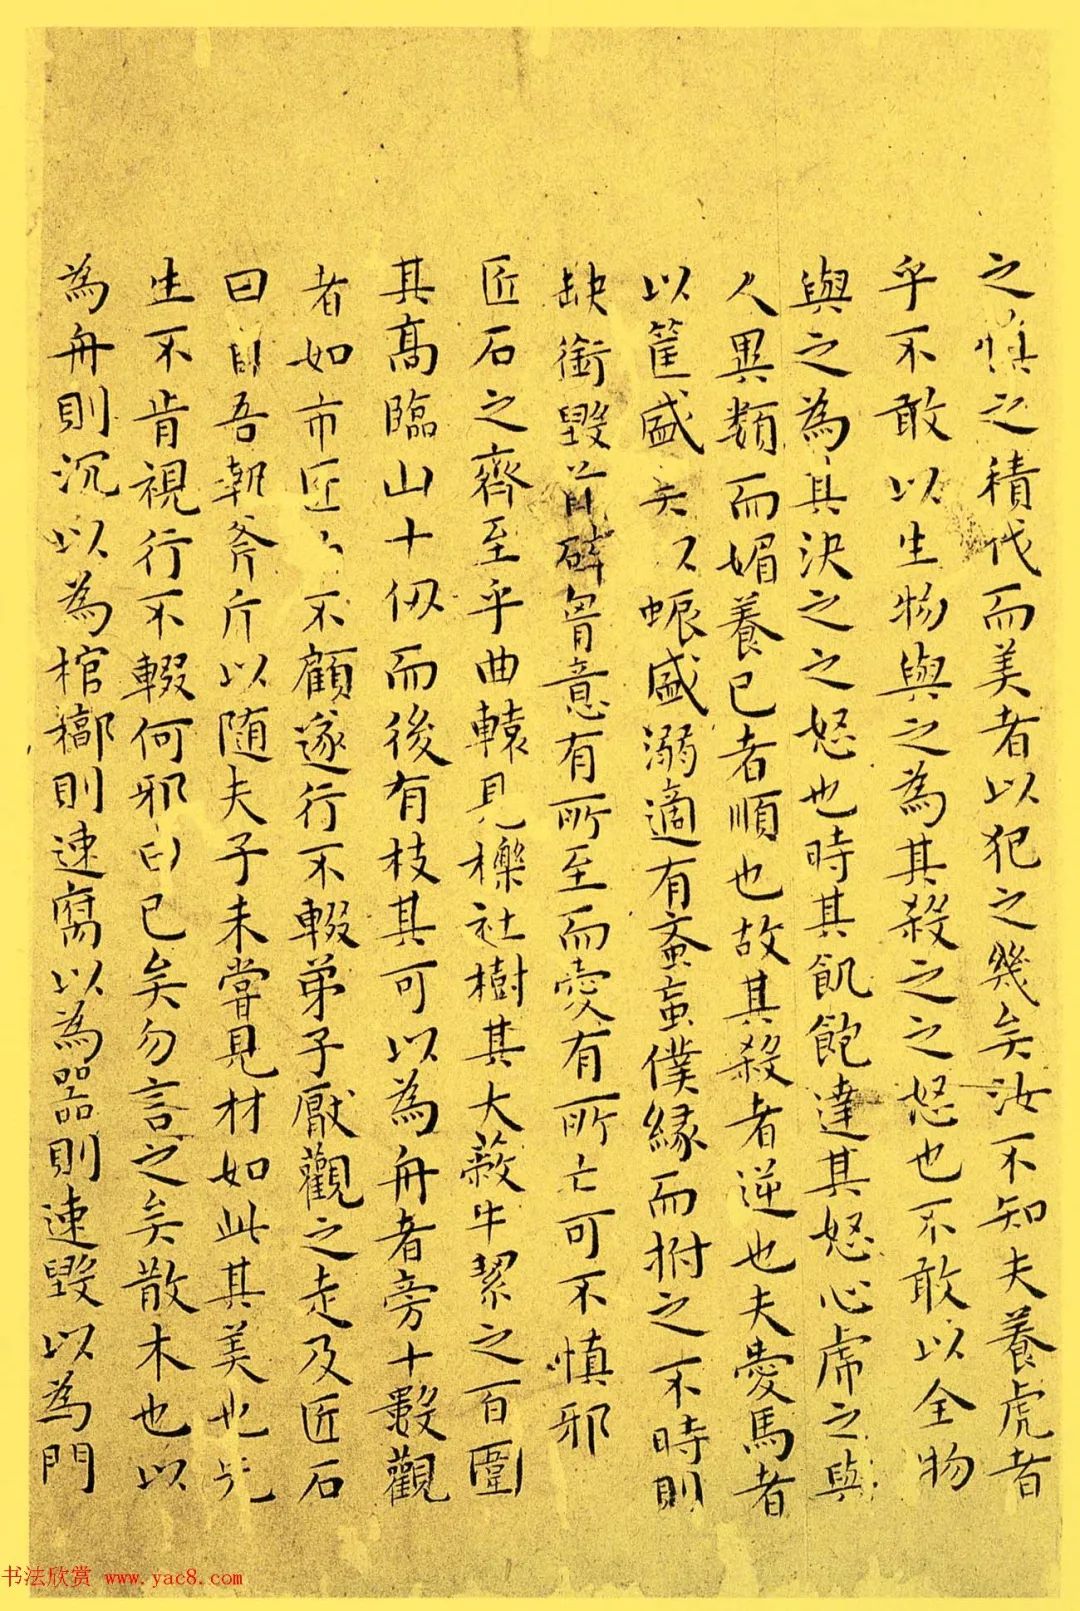 之慎之積伐而美者以犯之幾矣汝不知夫養虎者
乎不敢以生物與之為其殺之之怒也不敢以全物
與之為其決之之怒也時其飢飽達其怒心虎之與
人異類而媚養已者順也故其殺者逆也夫愛馬者
以筐盛矢以蜄盛溺適有蚉䖟僕緣而拊之不時則
缺銜毀首碎胷意有所至而愛有所亡可不慎邪
匠石之齊至乎曲轅見櫟社樹其大蔽牛絜之百圍
其高臨山十仞而後有枝其可以為舟者旁十數觀
者如市匠不顧遂行不輟弟子厭觀之走及匠石
曰自吾執斧斤以隨夫子未嘗見材如此其美也先
生不肯視行不輟何邪曰已矣勿言之矣散木也以
為舟則沉以為棺槨則速腐以為器則速毀以為門
书法欣赏 www.yac8.com